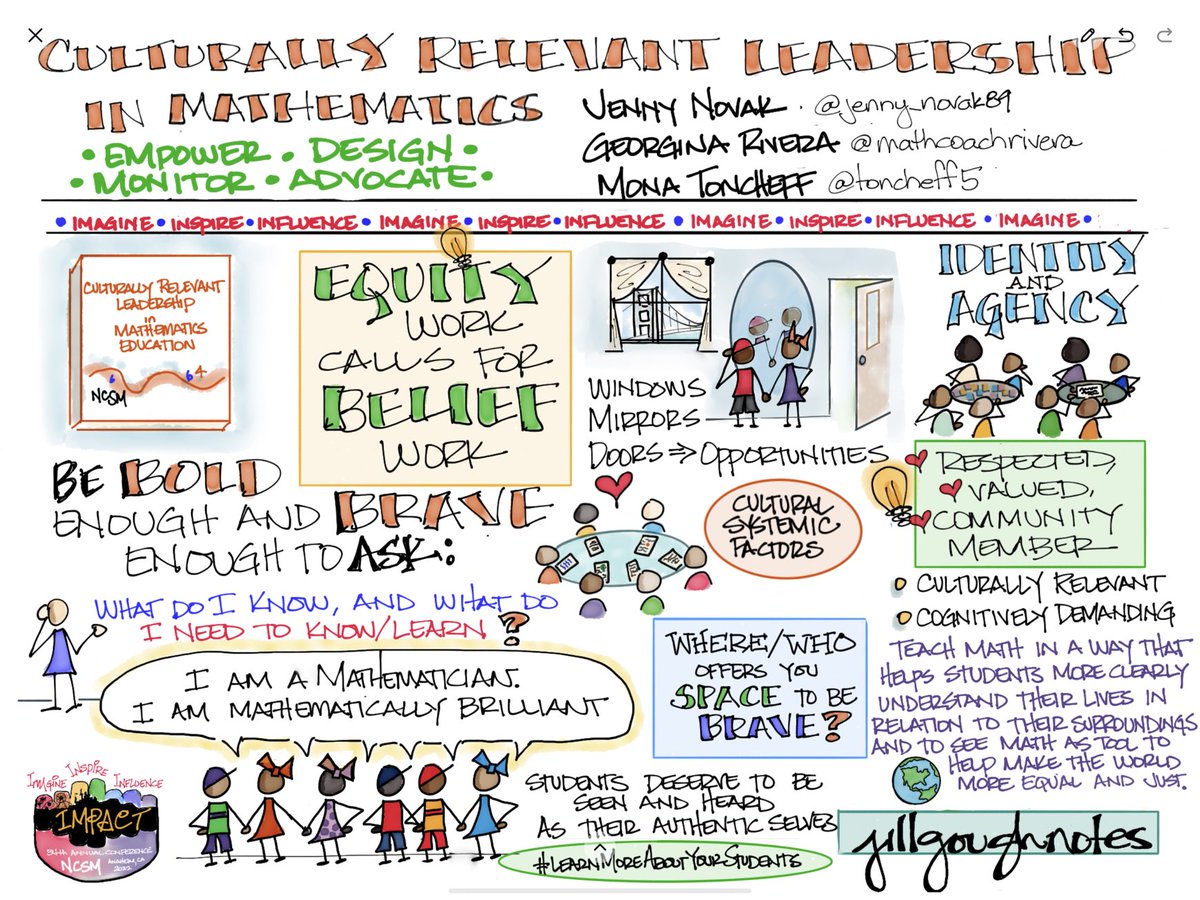 CULTURALLY RELEVANT LEADERSHIP
IN MATHEMATICS
• EMPOWER • DESIGN •
• MONITOR • ADVOCATE •
JENNY NOVAK • @jenny_novak89
GEORGINA RIVERA @mathcoachrivera
MONA TONCHEFF @toncheff5
• IMAGINE • INSPIRE • INFLUENCE • IMAGINE • INSPIRE • INFLUENCE • IMAGINE • INSPIRE • INFLUENCE • IMAGINE •
CULTURALLY RELEVANT
LEADERSHIP
in
MATHEMATICS
EDUCATION
NCSM
EQUITY
WORK
CALLS FOR
BELIEF
WORK
WINDOWS
MIRRORS
DOORS ⇒ OPPORTUNITIES
IDENTITY
AND
AGENCY
RESPECTED,
VALUED,
COMMUNITY
MEMBER
CULTURALLY RELEVANT
COGNITIVELY DEMANDING
BE BOLD
ENOUGH AND BRAVE
ENOUGH TO ASK:
CULTURAL
SYSTEMIC
FACTORS
WHAT DO I KNOW, AND WHAT DO
I NEED TO KNOW/LEARN?
I AM A MATHEMATICIAN.
I AM MATHEMATICALLY BRILLIANT
WHERE/WHO
OFFERS YOU
SPACE TO BE
BRAVE?
TEACH MATH IN A WAY THAT
HELPS STUDENTS MORE CLEARLY
UNDERSTAND THEIR LIVES IN
RELATION TO THEIR SURROUNDINGS
AND TO SEE MATH AS TOOL TO
HELP MAKE THE WORLD
MORE EQUAL AND JUST.
IMAGINE INSPIRE INFLUENCE
IMPACT
54th ANNUAL CONFERENCE
NCSM ANAHEIM, CA
2022
STUDENTS DESERVE TO BE
SEEN AND HEARD
AS THEIR AUTHENTIC SELVES
#LEARNMOREABOUTYOURSTUDENTS
jillgoughnotes